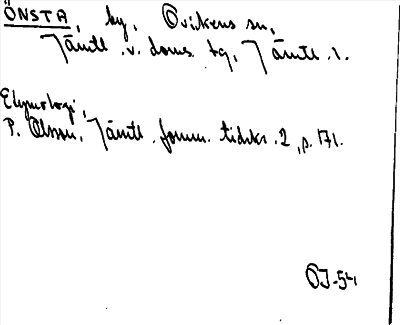 ÖNSTA, by, Ovikens sn,
Jämtl. v. doms. tg, Jämtl. l.
Etymologi,
P. Olsson, Jämtl. fornm. tidskr. 2, p. 171.
OJ-54